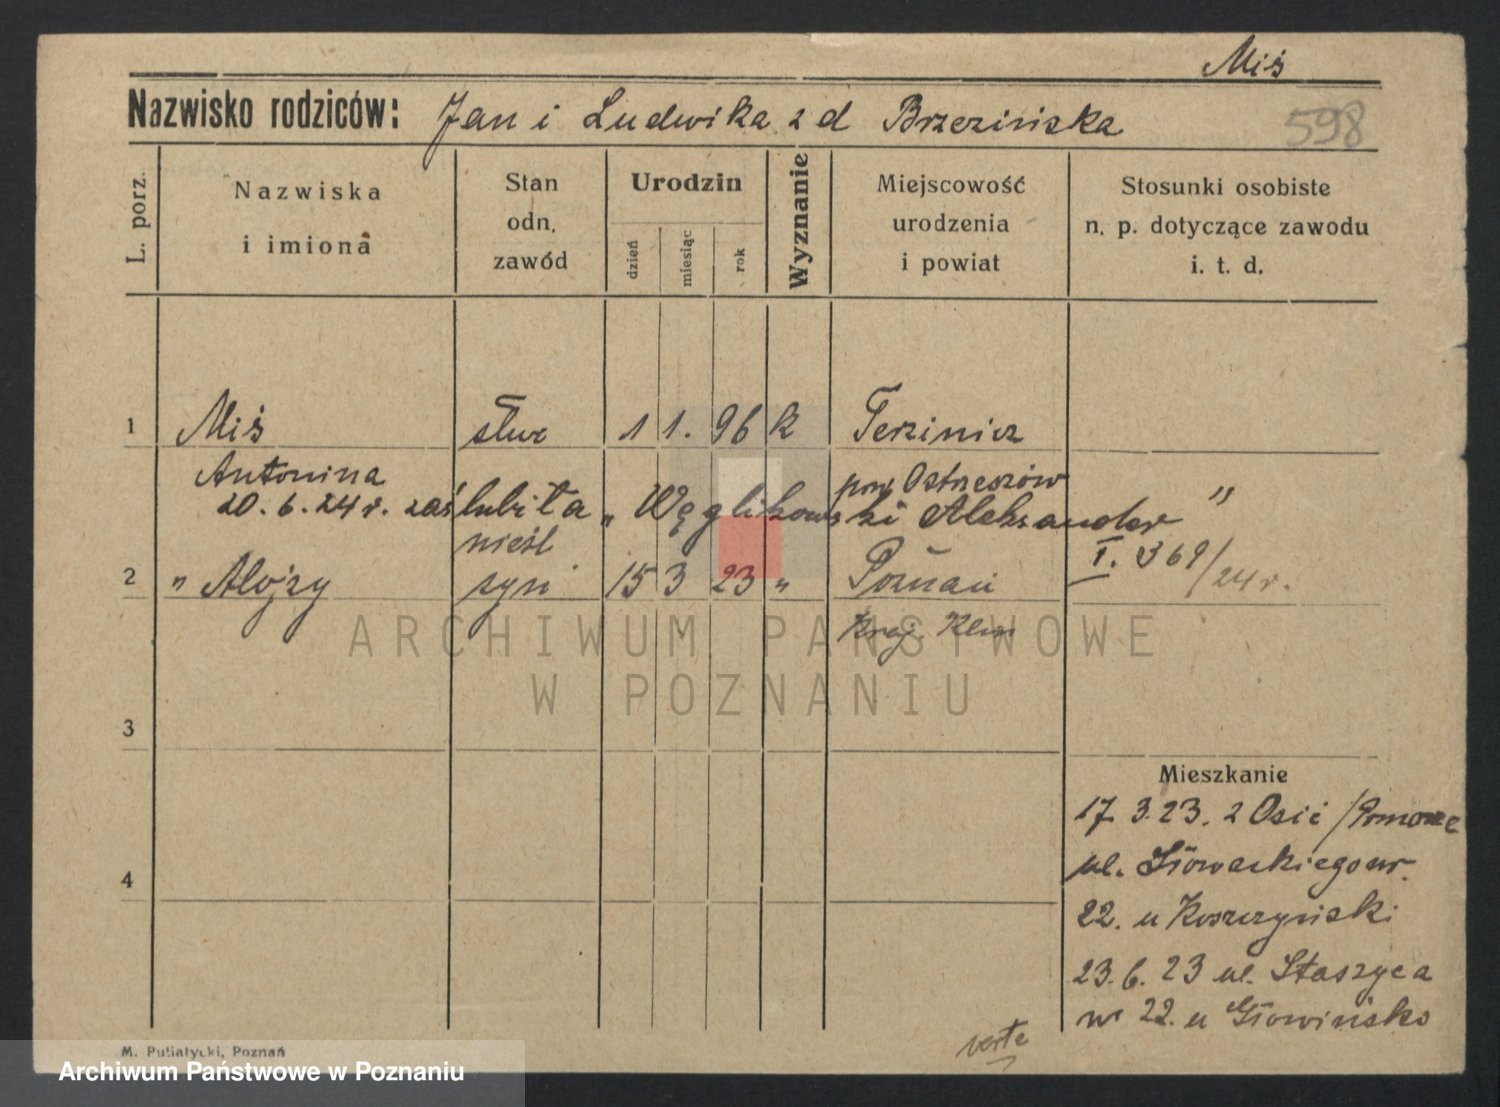 Miś
Nazwisko rodziców: Jan i Ludwika z d Brzezińska
598
L. porz.
Nazwiska
i imiona
Stan
odn.
zawód
Urodzin
dzień
miesiąc
rok
Wyznanie
Miejscowość
urodzenia
i powiat
Stosunki osobiste
n. p. dotyczące zawodu
i. t. d.
1 Miś służ 1 1. 96 k Terzinicz
Antonina pow Ostrzeszów
20. 6. 24 r. zaślubiła „Węglikowski Aleksander"
nieśl
2 " Alojzy syn 15 3 23 " Poznań I. 369/24 r.
Kraj. Klin
ARCHIWUM PAŃSTWOWE
W POZNANIU
3
Mieszkanie
17 3. 23. z Osie /Pomorze
ul. Słowackiego nr.
4
22. u Koszczyński
23. 6. 23 ul. Staszyca
nr 22. u Głowińsko
verte
M. Putiatycki, Poznań
Archiwum Państwowe w Poznaniu